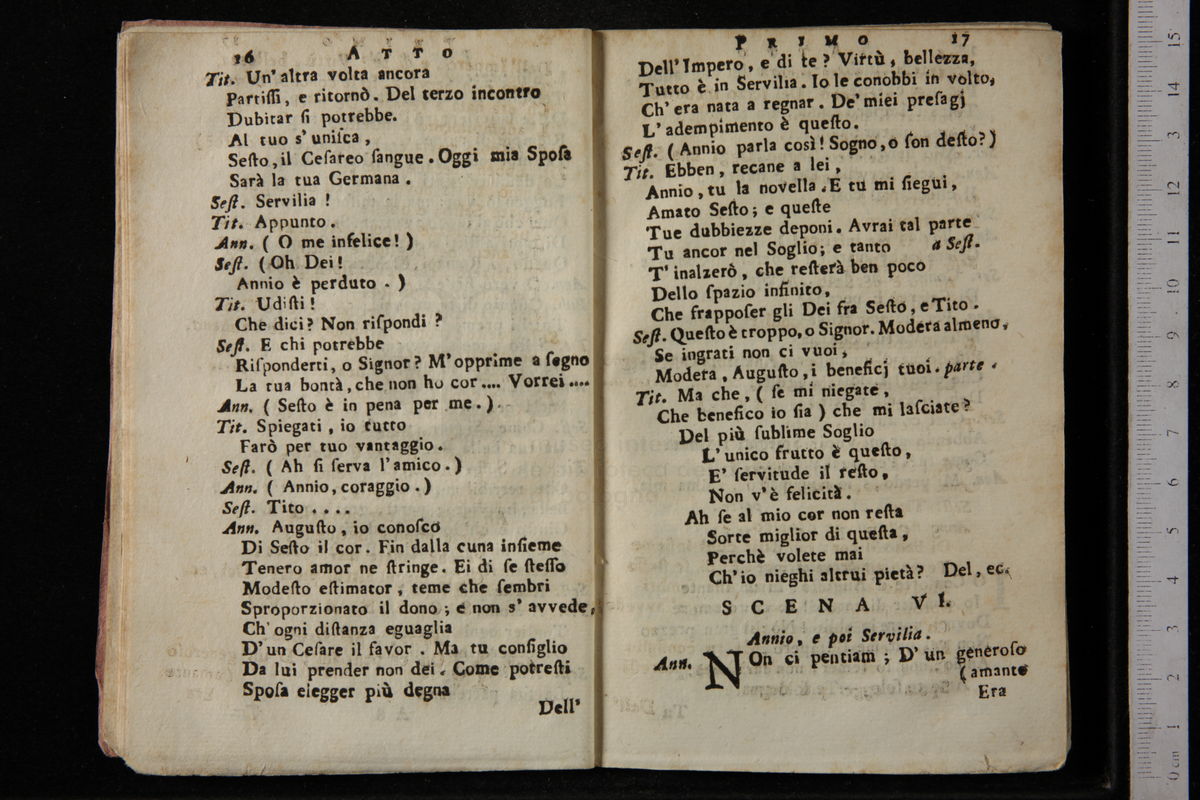 16 ATTO
Tit. Un' altra volta ancora
Partiſſi, e ritornò. Del terzo incontro
Dubitar ſi potrebbe.
Al tuo s' uniſca,
Seſto, il Ceſareo ſangue. Oggi mia Spoſa
Sarà la tua Germana.
Seſt. Servilia!
Tit. Appunto.
Ann. (O me infelice!)
Seſt. (Oh Dei!
Annio è perduto.)
Tit. Udiſti!
Che dici? Non riſpondi?
Seſt. E chi potrebbe
Riſponderti, o Signor? M' opprime a ſegno
La tua bontà, che non ho cor.... Vorrei....
Ann. (Seſto è in pena per me.).
Tit. Spiegati, io tutto
Farò per tuo vantaggio.
Seſt. (Ah ſi ſerva l'amico.)
Ann. (Annio, coraggio.)
Seſt. Tito....
Ann. Auguſto, io conoſco
Di Seſto il cor. Fin dalla cuna inſieme
Tenero amor ne ſtringe. Ei di ſe ſteſſo
Modeſto eſtimator, teme che ſembri
Sproporzionato il dono; e non s' avvede,
Ch' ogni diſtanza eguaglia
D' un Ceſare il favor. Ma tu conſiglio
Da lui prender non dei. Come potreſti
Spoſa elegger più degna
Dell'
PRIMO 17
Dell' Impero, e di te? Virtù, bellezza,
Tutto è in Servilia. Io le conobbi in volto,
Ch' era nata a regnar. De' miei preſagj
L' adempimento è queſto.
Seſt. (Annio parla così! Sogno, o ſon deſto?)
Tit. Ebben, recane a lei,
Annio, tu la novella. E tu mi ſiegui,
Amato Seſto; e queſte
Tue dubbiezze deponi. Avrai tal parte
Tu ancor nel Soglio; e tanto a Seſt.
T' inalzerò, che reſterà ben poco
Dello ſpazio infinito,
Che frappoſer gli Dei fra Seſto, e Tito.
Seſt. Queſto è troppo, o Signor. Modera almeno,
Se ingrati non ci vuoi,
Modera, Auguſto, i beneficj tuoi. parte.
Tit. Ma che, (ſe mi niegate,
Che benefico io ſia) che mi laſciate?
Del più ſublime Soglio
L' unico frutto è queſto,
E' ſervitude il reſto,
Non v' è felicità.
Ah ſe al mio cor non reſta
Sorte miglior di queſta,
Perchè volete mai
Ch' io nieghi altrui pietà? Del, ec.
SCENA VI.
Annio, e poi Servilia.
Ann. NOn ci pentiam; D' un generoſo
(amante
Era
15
14
13
12
11
10
9
8
7
6
5
4
3
2
1
0 cm